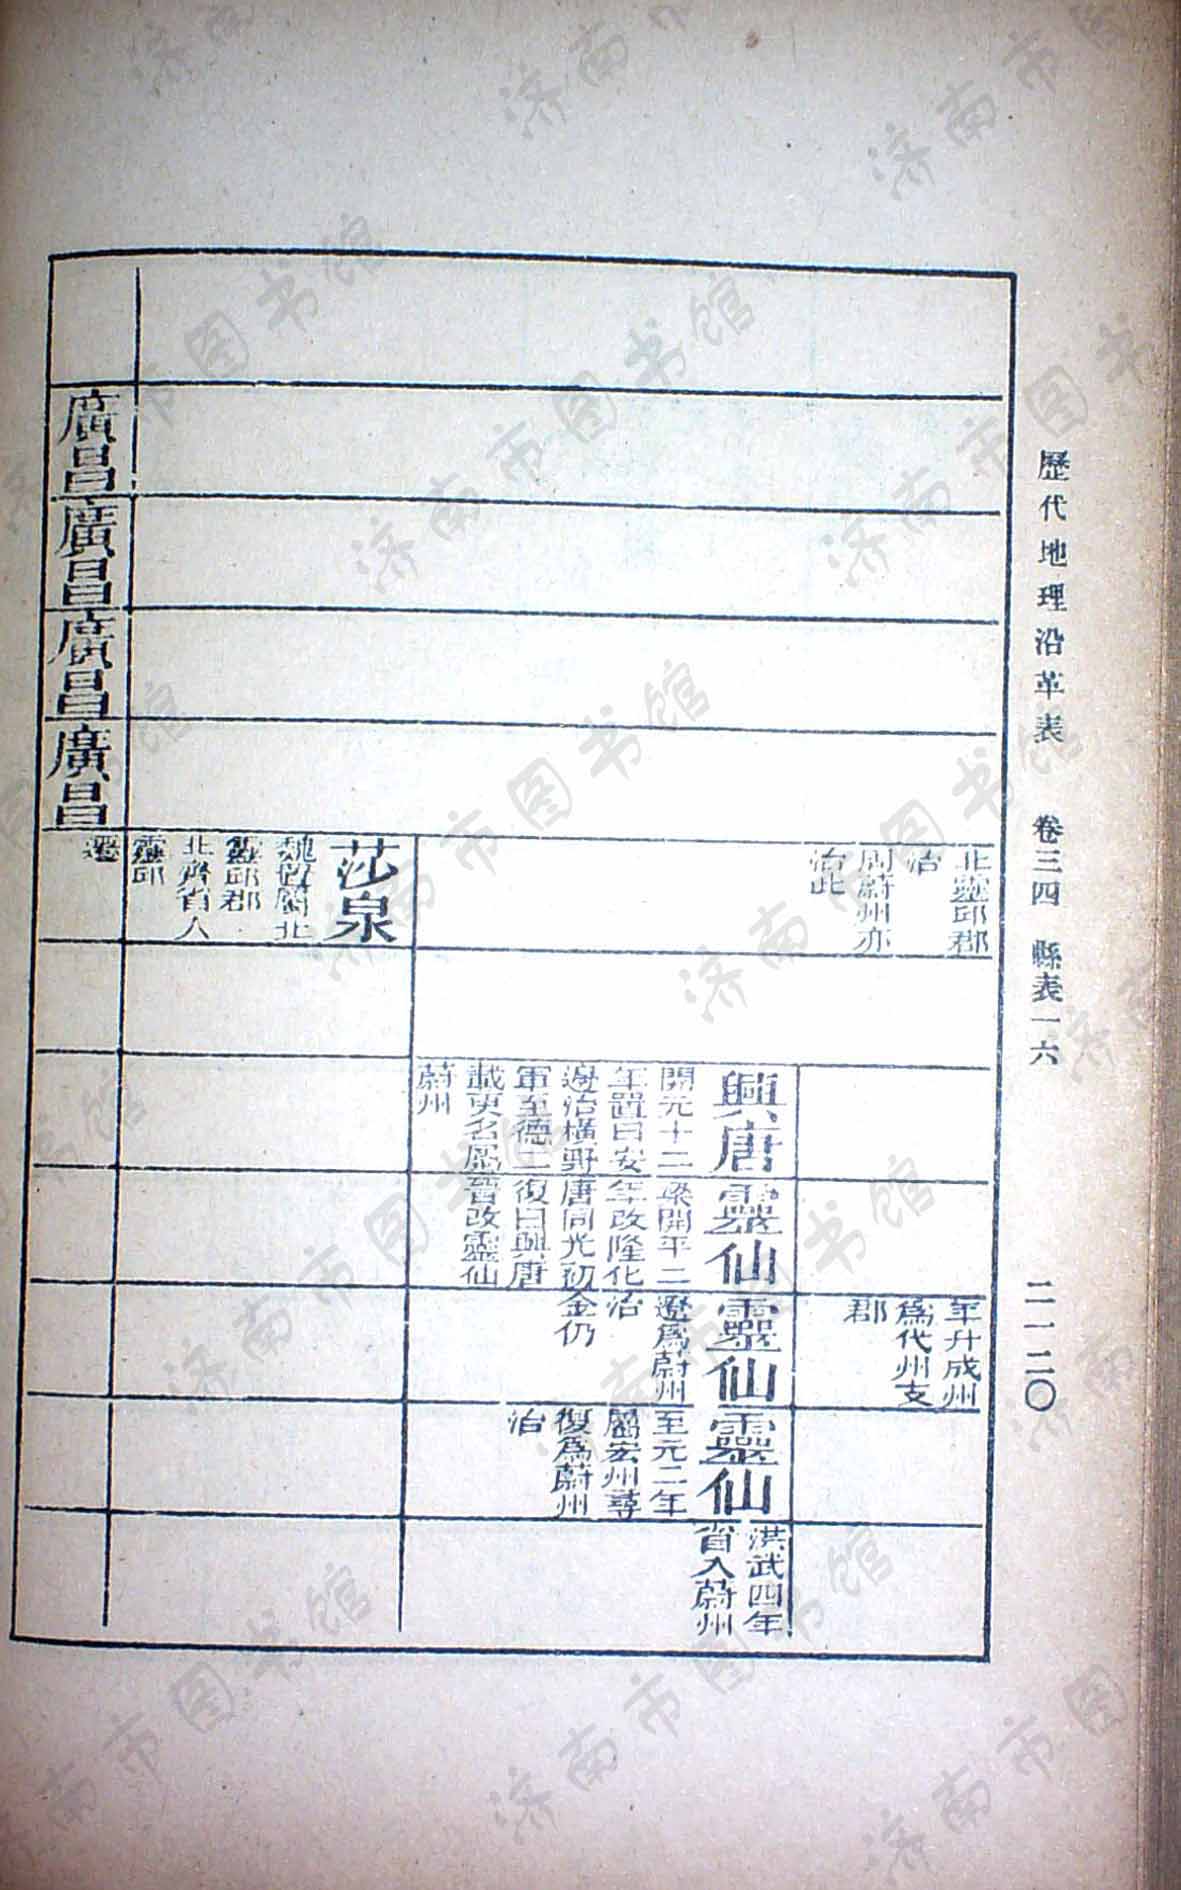 歷代地理沿革表　卷三四　縣表一六　二一二〇
北靈邱郡
治
周蔚州亦
治此
年升成州
爲代州支
郡
興唐
開元十二
年置曰安
邊治橫野
軍至德二
載更名屬
蔚州
靈仙
梁開平二
年改隆化
唐同光初
復曰興唐
晉改靈仙
靈仙
遼爲蔚州
治
金仍
靈仙
至元二年
屬宏州尋
復爲蔚州
治
洪武四年
省入蔚州
莎泉
魏置屬北
靈邱郡
北齊省入
靈邱
廣昌
廣昌
廣昌
廣昌
济南市图书馆